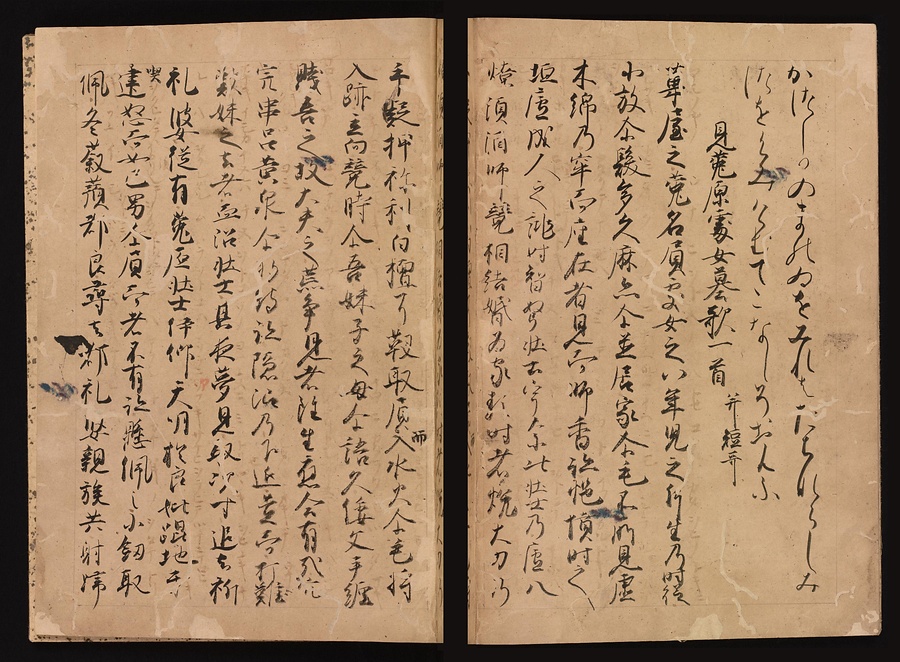 かつしかのまのゐをみれはたちならしみ
つをくみけむてこなしそおもふ
見菟原處女墓歌一首 并短哥
葦屋之菟名負處女之八年兒之片生乃時従
小放尓髪多久麻弖尓並居家尓毛不所見虚
木綿乃牢而座在者見而師香跡悒憤時之
垣廬成人之誂時智弩壮士宇奈比壮士乃廬八
燎須酒師競相結婚為家類時者焼大刀乃
手頴押祢利白檀弓靫取負而入水火尓毛将
入跡立向競時尓吾妹子之母尓語久倭文手纏
賤吾之故大夫之荒争見者雖生應合有哉
宍串呂黄泉尓将待跡隠沼乃下延置而打
歎妹之去者血沼壮士其夜夢見取次寸追去祁
礼婆後有菟原壮士伊仰天叫於良妣跙地牙
喫建怒而如己男尓負而者不有跡懸佩之小劔取
佩冬蔚蕷都良尋去祁礼婆親族共射歸